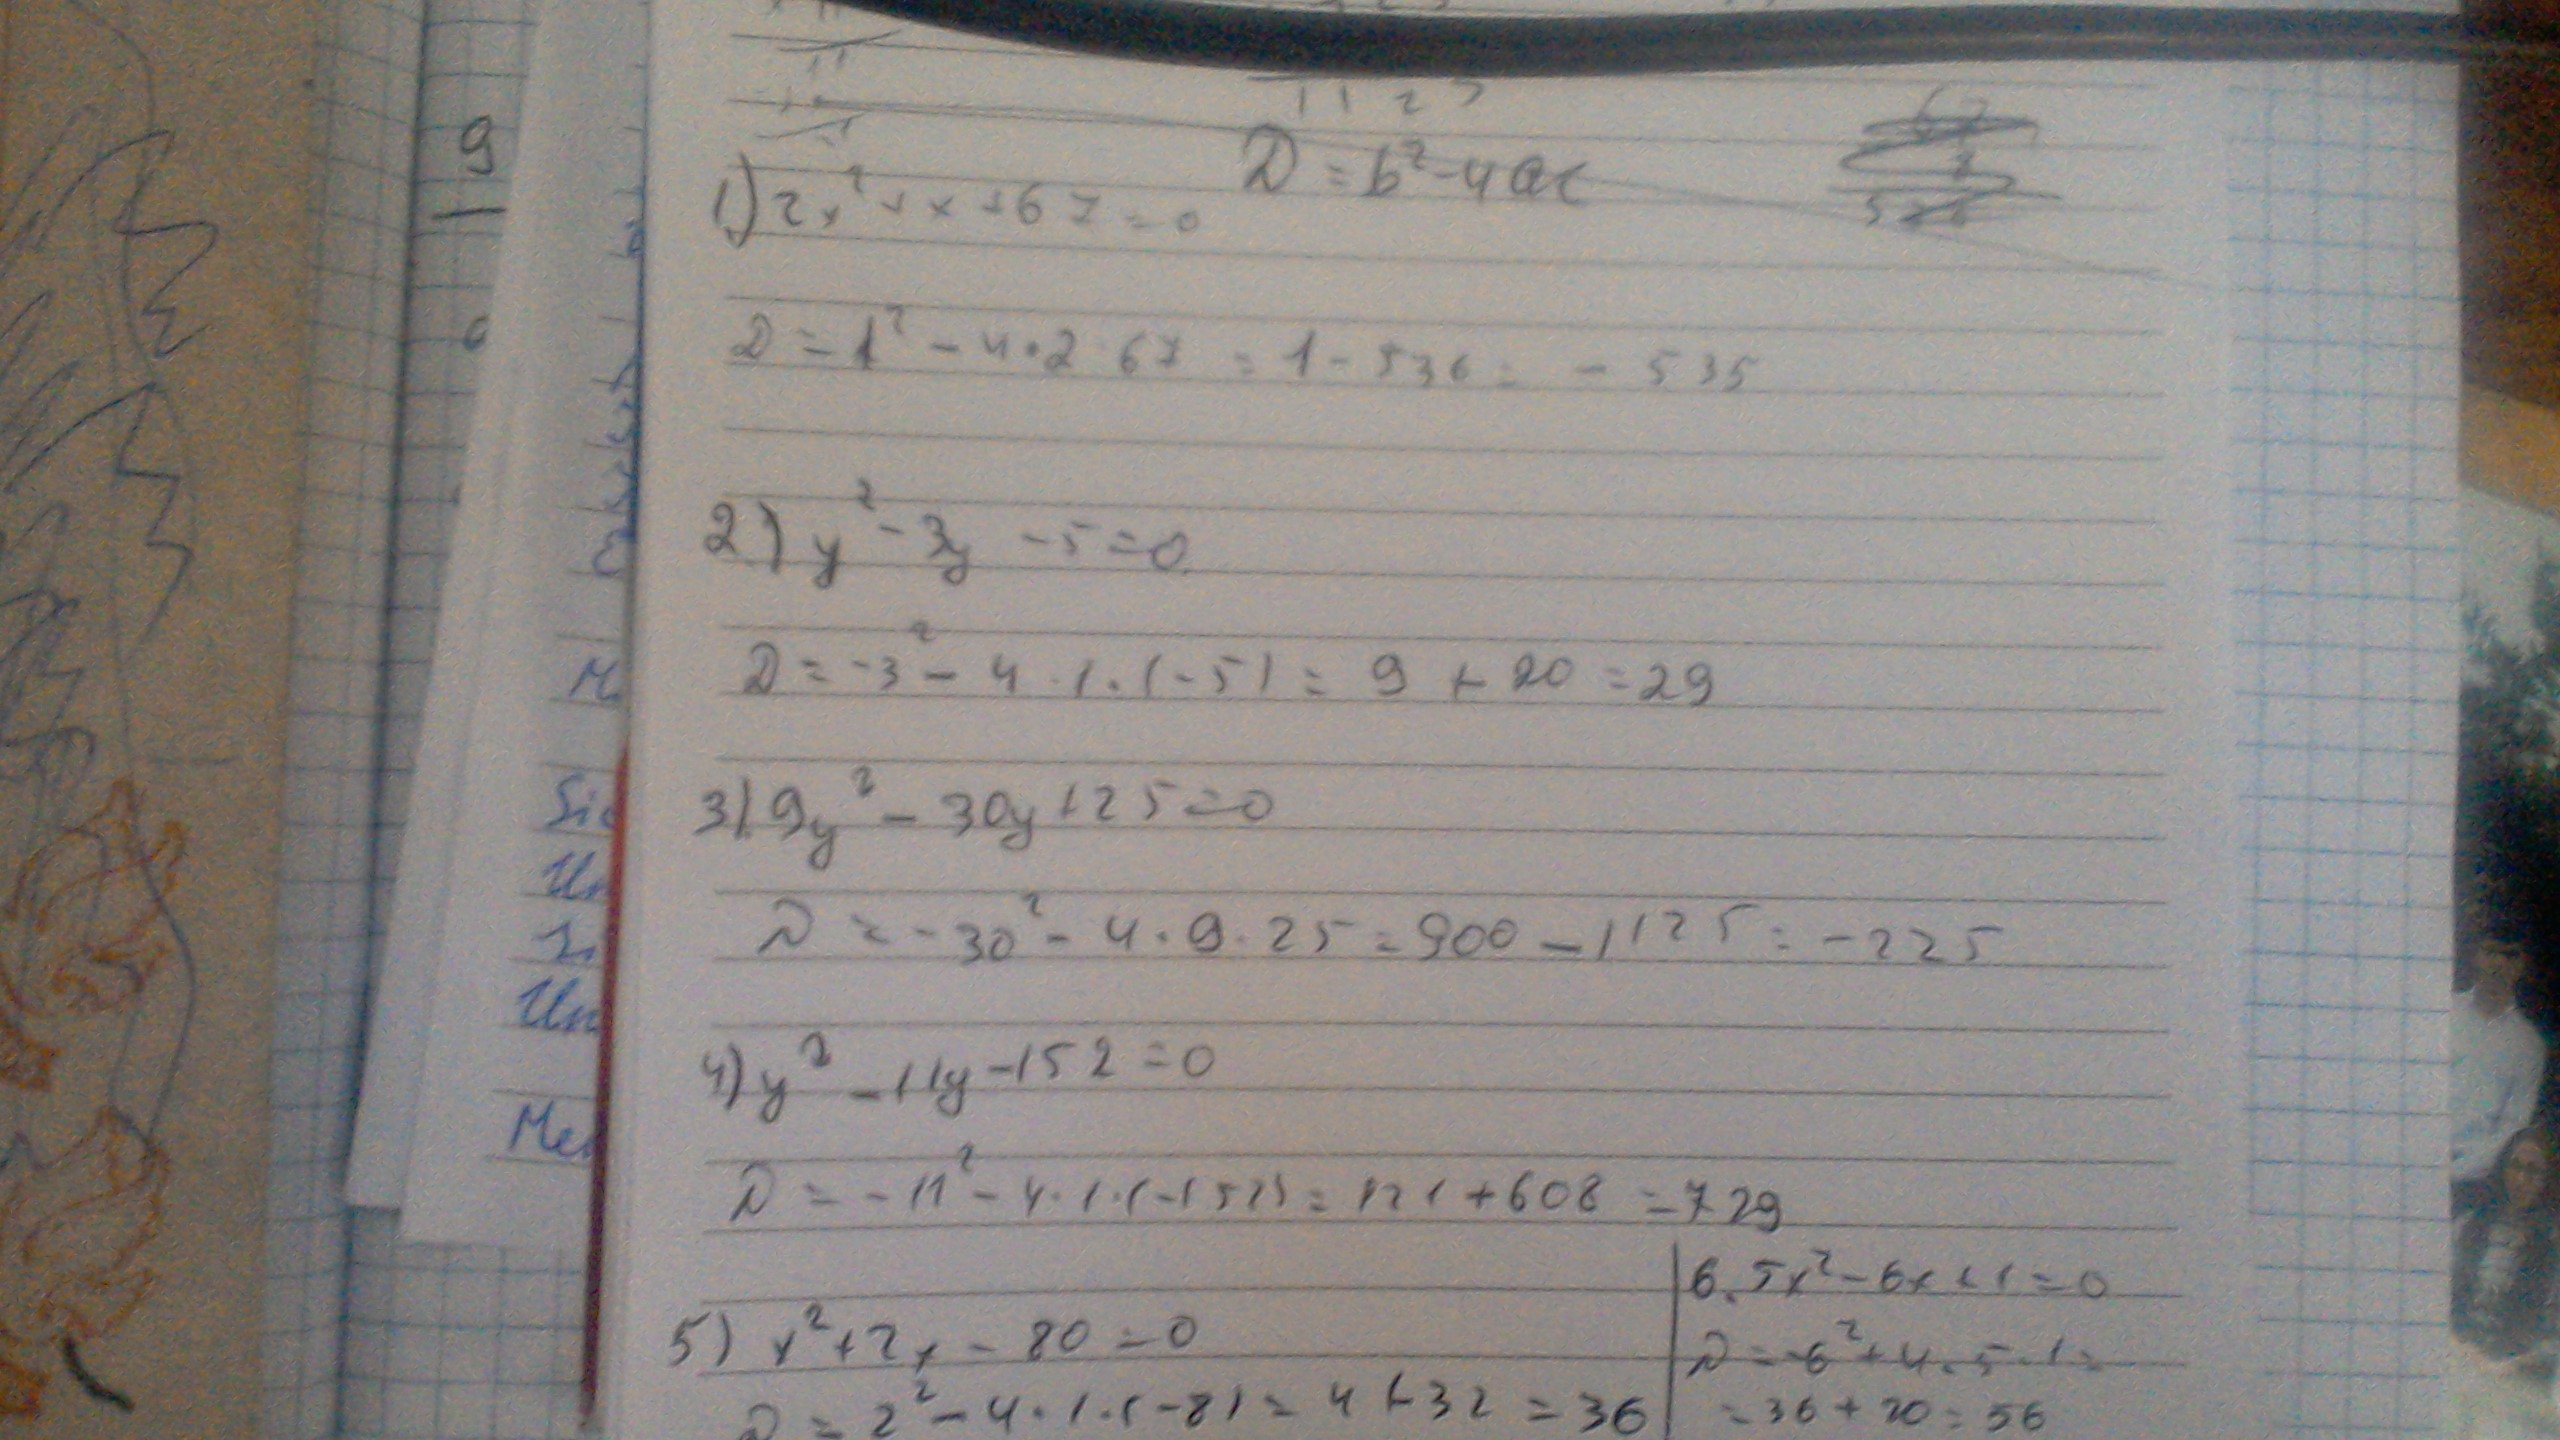 D = b² - 4ac
1) 2x² + x + 67 = 0
D = 1² - 4 · 2 67 = 1 - 536 = - 535
2) y² - 3y - 5 = 0
D = -3² - 4 · 1 · (-5) = 9 + 20 = 29
3) 9y² - 30y + 25 = 0
D = -30² - 4 · 9 · 25 = 900 - 1125 = -225
4) y² - 11y - 152 = 0
D = -11² - 4 · 1 · (-152) = 121 + 608 = 729
5) x² + 2x - 80 = 0
D = 2² - 4 · 1 · (-8) = 4 + 32 = 36
6. 5x² - 6x + 1 = 0
D = -6² + 4 · 5 · 1 =
= 36 + 20 = 56